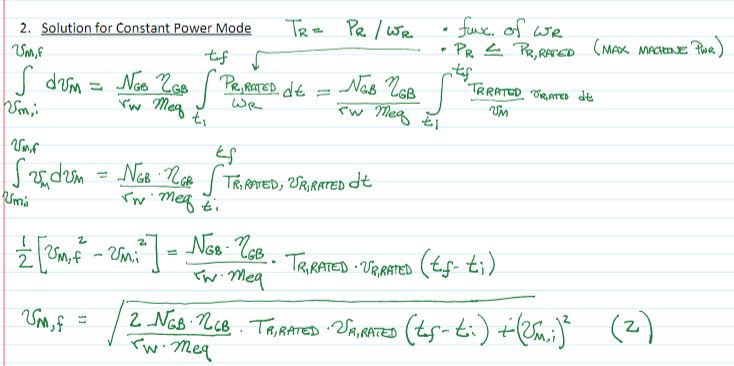 2. Solution for Constant Power Mode T_R = P_R / ω_R • func. of ω_R
• P_R ≤ P_R,RATED (MAX MACHINE PWR)
∫_{v_m,i}^{v_m,f} dv_m = (N_GB η_GB / r_w m_eq) ∫_{t_i}^{t_f} (P_R,RATED / ω_R) dt = (N_GB η_GB / r_w m_eq) ∫_{t_i}^{t_f} (T_R,RATED v_R,RATED / v_m) dt
∫_{v_m,i}^{v_m,f} v_m dv_m = (N_GB · η_GB / r_w · m_eq) ∫_{t_i}^{t_f} T_R,RATED, v_R,RATED dt
1/2 [v_m,f² - v_m,i²] = (N_GB · η_GB / r_w · m_eq) · T_R,RATED · v_R,RATED (t_f - t_i)
v_m,f = √(2 N_GB · η_GB / r_w · m_eq · T_R,RATED · v_R,RATED (t_f - t_i) + (v_m,i)²) (2)